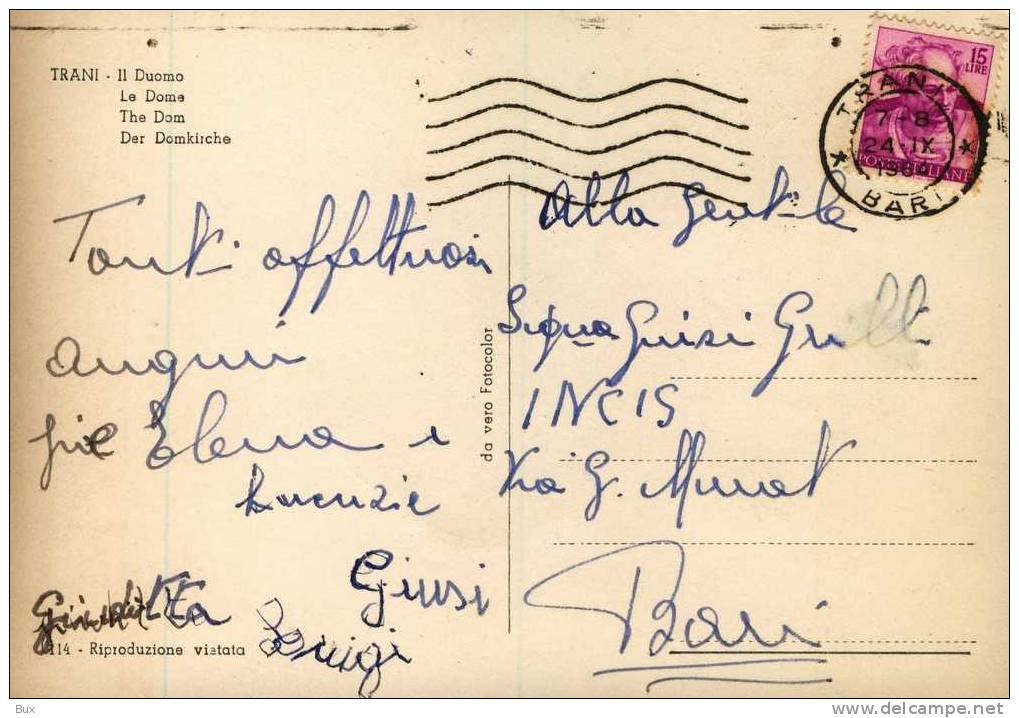 TRANI - Il Duomo
Le Dome
The Dom
Der Domkirche
15
LIRE
POSTE ITALIANE
TRANI
7-8
24 IX
1964
BARI
Tanti affettuosi
auguri
Elena e
Giusi
Luigi
114 - Riproduzione vietata
da vero Fotocolor
Alla Gentile
Sig.na Giusi
INCIS
Via G. Murat
Bari
Bux
www.delcampe.net